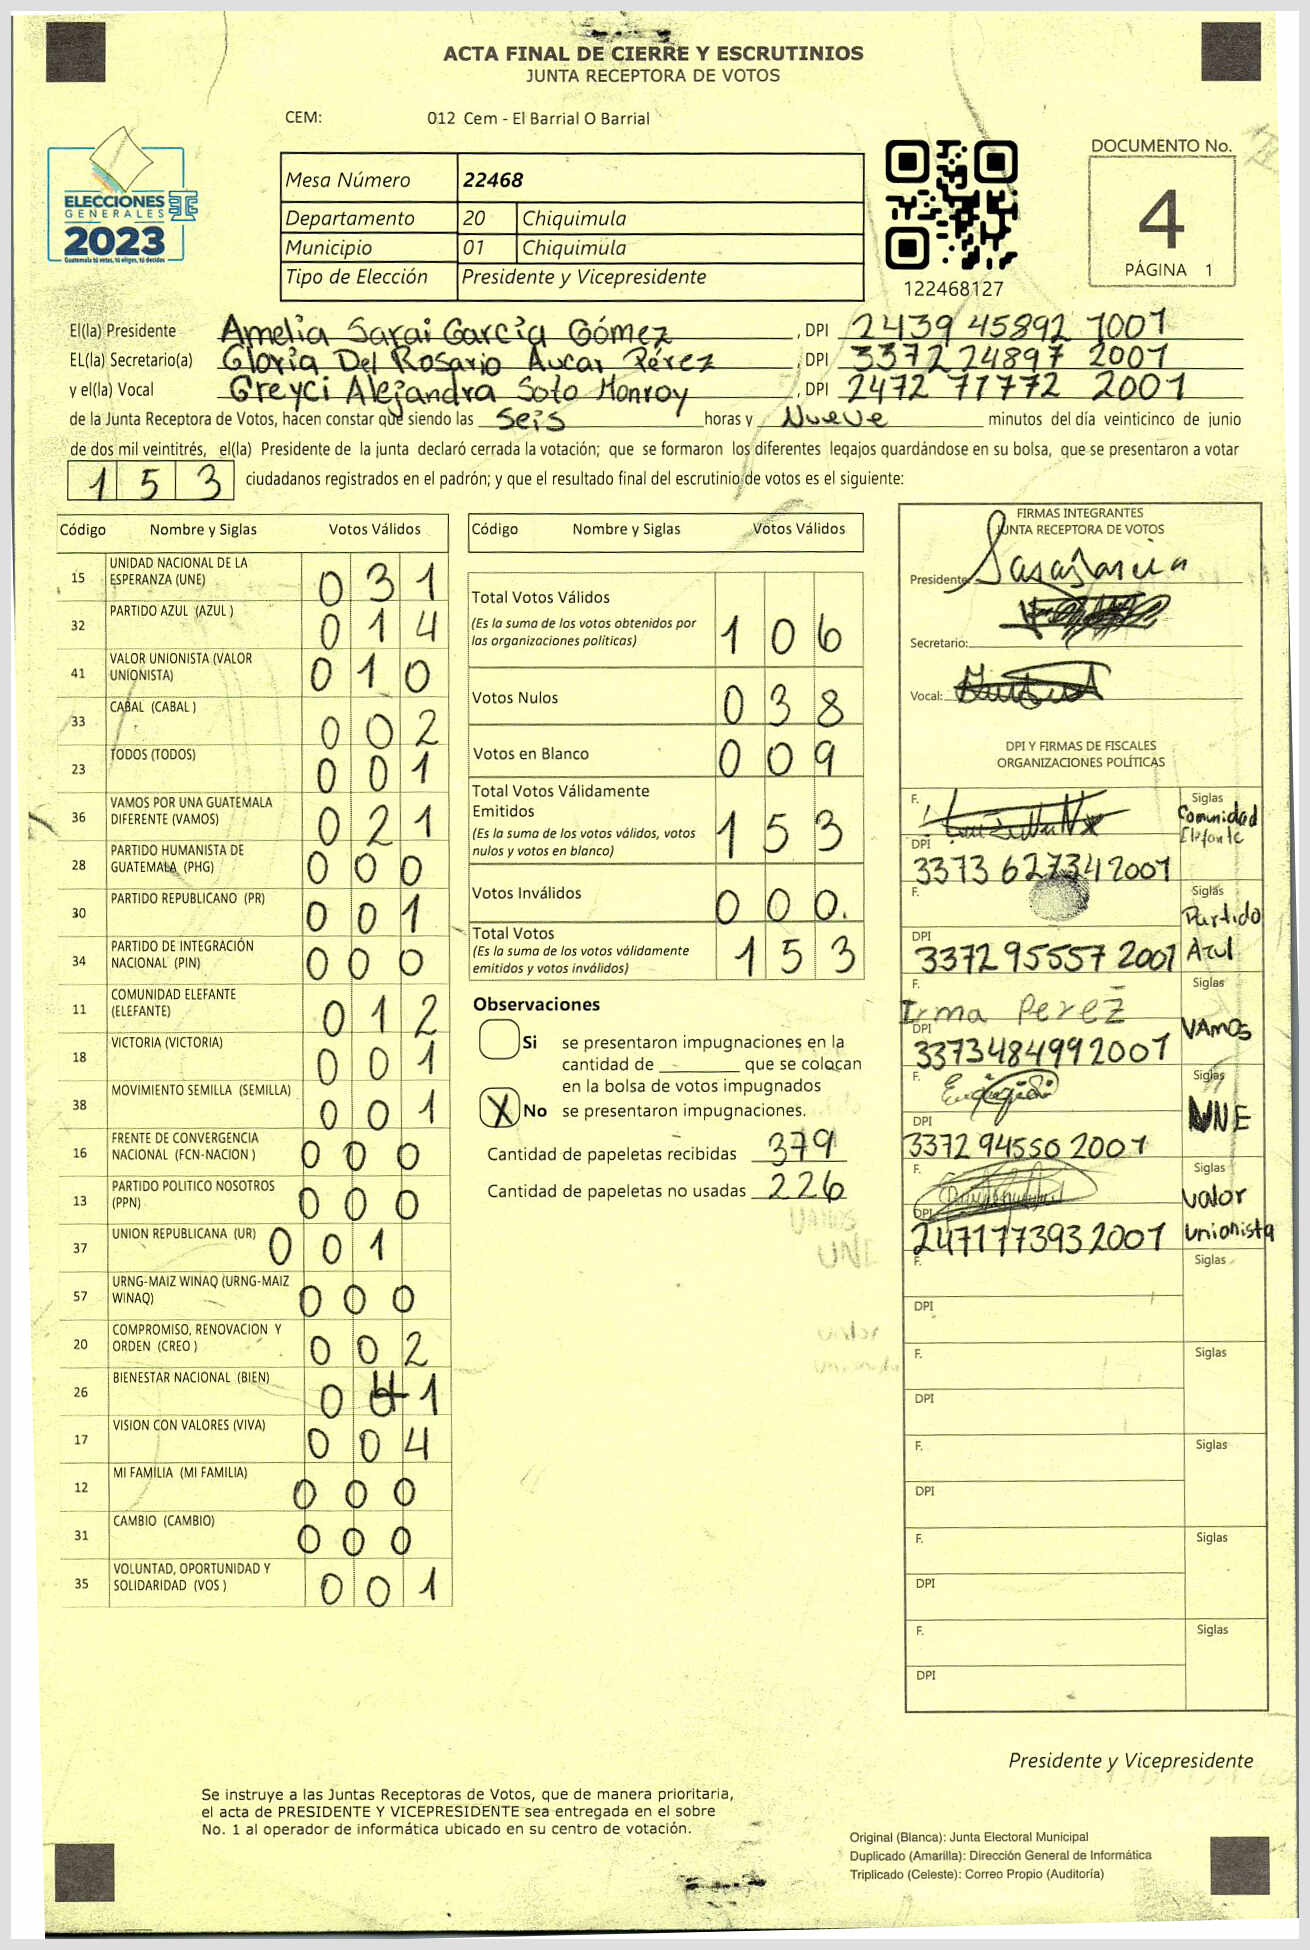 ACTA FINAL DE CIERRE Y ESCRUTINIOS
JUNTA RECEPTORA DE VOTOS
CEM: 012 Cem - El Barrial O Barrial
ELECCIONES
GENERALES
2023
Guatemala tú votas, tú eliges, tú decides
Mesa Número 22468
Departamento 20 Chiquimula
Municipio 01 Chiquimula
Tipo de Elección Presidente y Vicepresidente
122468127
DOCUMENTO No.
4
PÁGINA 1
El(la) Presidente Amelia Sarai García Gómez, DPI 2439 45892 1001
EL(la) Secretario(a) Gloria Del Rosario Aucar Pérez, DPI 3372 24897 2001
y el(la) Vocal Greyci Alejandra Soto Monroy, DPI 2472 71772 2001
de la Junta Receptora de Votos, hacen constar que siendo las seis horas y Nueve minutos del día veinticinco de junio
de dos mil veintitrés, el(la) Presidente de la junta declaró cerrada la votación; que se formaron los diferentes legajos guardándose en su bolsa, que se presentaron a votar
153 ciudadanos registrados en el padrón; y que el resultado final del escrutinio de votos es el siguiente:
Código Nombre y Siglas Votos Válidos
15 UNIDAD NACIONAL DE LA ESPERANZA (UNE) 031
32 PARTIDO AZUL (AZUL ) 014
41 VALOR UNIONISTA (VALOR UNIONISTA) 010
33 CABAL (CABAL ) 002
23 TODOS (TODOS) 001
36 VAMOS POR UNA GUATEMALA DIFERENTE (VAMOS) 021
28 PARTIDO HUMANISTA DE GUATEMALA (PHG) 000
30 PARTIDO REPUBLICANO (PR) 001
34 PARTIDO DE INTEGRACIÓN NACIONAL (PIN) 000
11 COMUNIDAD ELEFANTE (ELEFANTE) 012
18 VICTORIA (VICTORIA) 001
38 MOVIMIENTO SEMILLA (SEMILLA) 001
16 FRENTE DE CONVERGENCIA NACIONAL (FCN-NACION ) 000
13 PARTIDO POLITICO NOSOTROS (PPN) 000
37 UNION REPUBLICANA (UR) 001
57 URNG-MAIZ WINAQ (URNG-MAIZ WINAQ) 000
20 COMPROMISO, RENOVACION Y ORDEN (CREO ) 002
26 BIENESTAR NACIONAL (BIEN) 0 1
17 VISION CON VALORES (VIVA) 004
12 MI FAMILIA (MI FAMILIA) 000
31 CAMBIO (CAMBIO) 000
35 VOLUNTAD, OPORTUNIDAD Y SOLIDARIDAD (VOS ) 001
Código Nombre y Siglas Votos Válidos
Total Votos Válidos
(Es la suma de los votos obtenidos por las organizaciones políticas) 106
Votos Nulos 038
Votos en Blanco 009
Total Votos Válidamente Emitidos
(Es la suma de los votos válidos, votos nulos y votos en blanco) 153
Votos Inválidos 000.
Total Votos
(Es la suma de los votos válidamente emitidos y votos inválidos) 153
Observaciones
Si se presentaron impugnaciones en la
cantidad de ________ que se colocan
en la bolsa de votos impugnados
X No se presentaron impugnaciones.
Cantidad de papeletas recibidas 379
Cantidad de papeletas no usadas 226
FIRMAS INTEGRANTES
JUNTA RECEPTORA DE VOTOS
Presidente:
Secretario:
Vocal:
DPI Y FIRMAS DE FISCALES
ORGANIZACIONES POLÍTICAS
F. Siglas Comunidad Elefante
DPI 3373 62734 2001
F. Siglas Partido Azul
DPI 3372 95557 2001
F. Irma Perez Siglas VAMOS
DPI 3373484992001
F. Siglas UNE
DPI 3372 94550 2001
F. Siglas Valor Unionista
DPI 2471773932001
F. Siglas
DPI
F. Siglas
DPI
F. Siglas
DPI
F. Siglas
DPI
F. Siglas
DPI
Presidente y Vicepresidente
Se instruye a las Juntas Receptoras de Votos, que de manera prioritaria,
el acta de PRESIDENTE Y VICEPRESIDENTE sea entregada en el sobre
No. 1 al operador de informática ubicado en su centro de votación.
Original (Blanca): Junta Electoral Municipal
Duplicado (Amarilla): Dirección General de Informática
Triplicado (Celeste): Correo Propio (Auditoría)